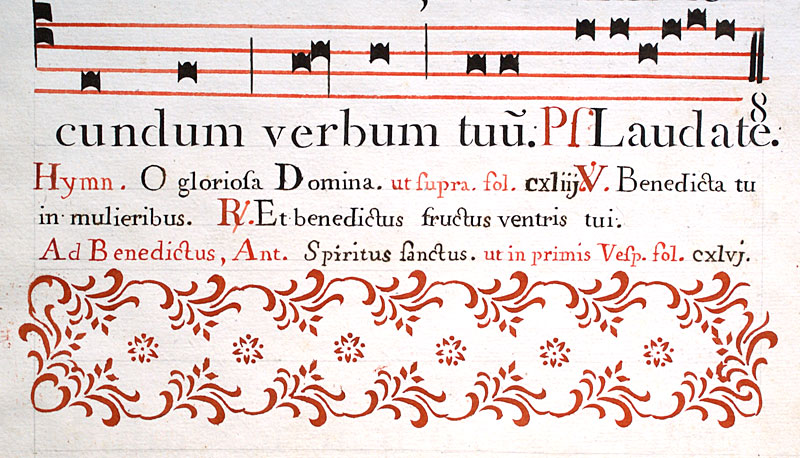 8
cundum verbum tuũ. Pſ. Laudate.
Hymn. O glorioſa Domina. ut ſupra. fol. cxliij ℣. Benedicta tu
in mulieribus. ℟. Et benedictus fructus ventris tui.
Ad Benedictus, Ant. Spiritus ſanctus. ut in primis Veſp. fol. cxlvj.